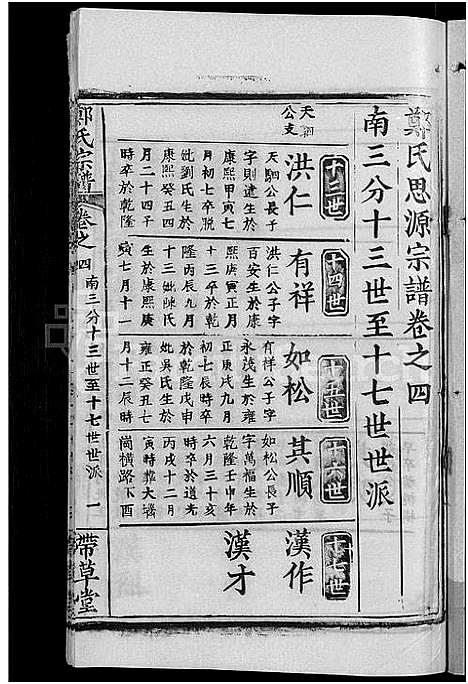 鄭氏思源宗譜卷之四
南三分十三世至十七世世派
十三世
天駟
公支
洪仁
天駟公長子
字則遠生於
康熙甲寅七
月初七卒歿
妣劉氏生於
康熙癸丑四
月二十四子
時卒於乾隆
十四世
有祥
洪仁公子字
百安生於康
熙庚寅正月
十三卒於乾
隆丙辰九月
十三妣陳氏
生於康熙庚
寅七月十一
十五世
如松
有祥公子字
永茂生於雍
正庚戌九月
初七辰時卒
於乾隆戊申
妣吳氏生於
雍正癸丑七
月十二辰時
十六世
其順
如松公長子
字萬福生於
乾隆壬申年
六月三十亥
時卒於道光
丙戌十二月
寅時葬大塘
崗橫路下酉
十七世
漢作
漢才
鄭氏宗譜
卷之四
南三分十三世至十七世世派
一
帶草堂